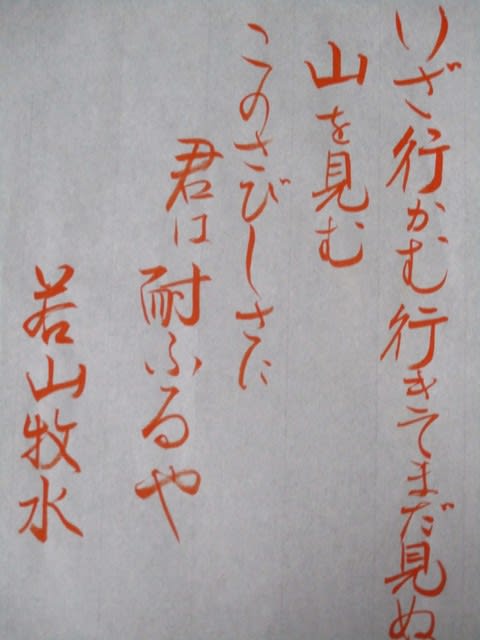 いざ行かむ行きてまだ見ぬ
山を見む
このさびしさに
君は
耐ふるや
若山牧水